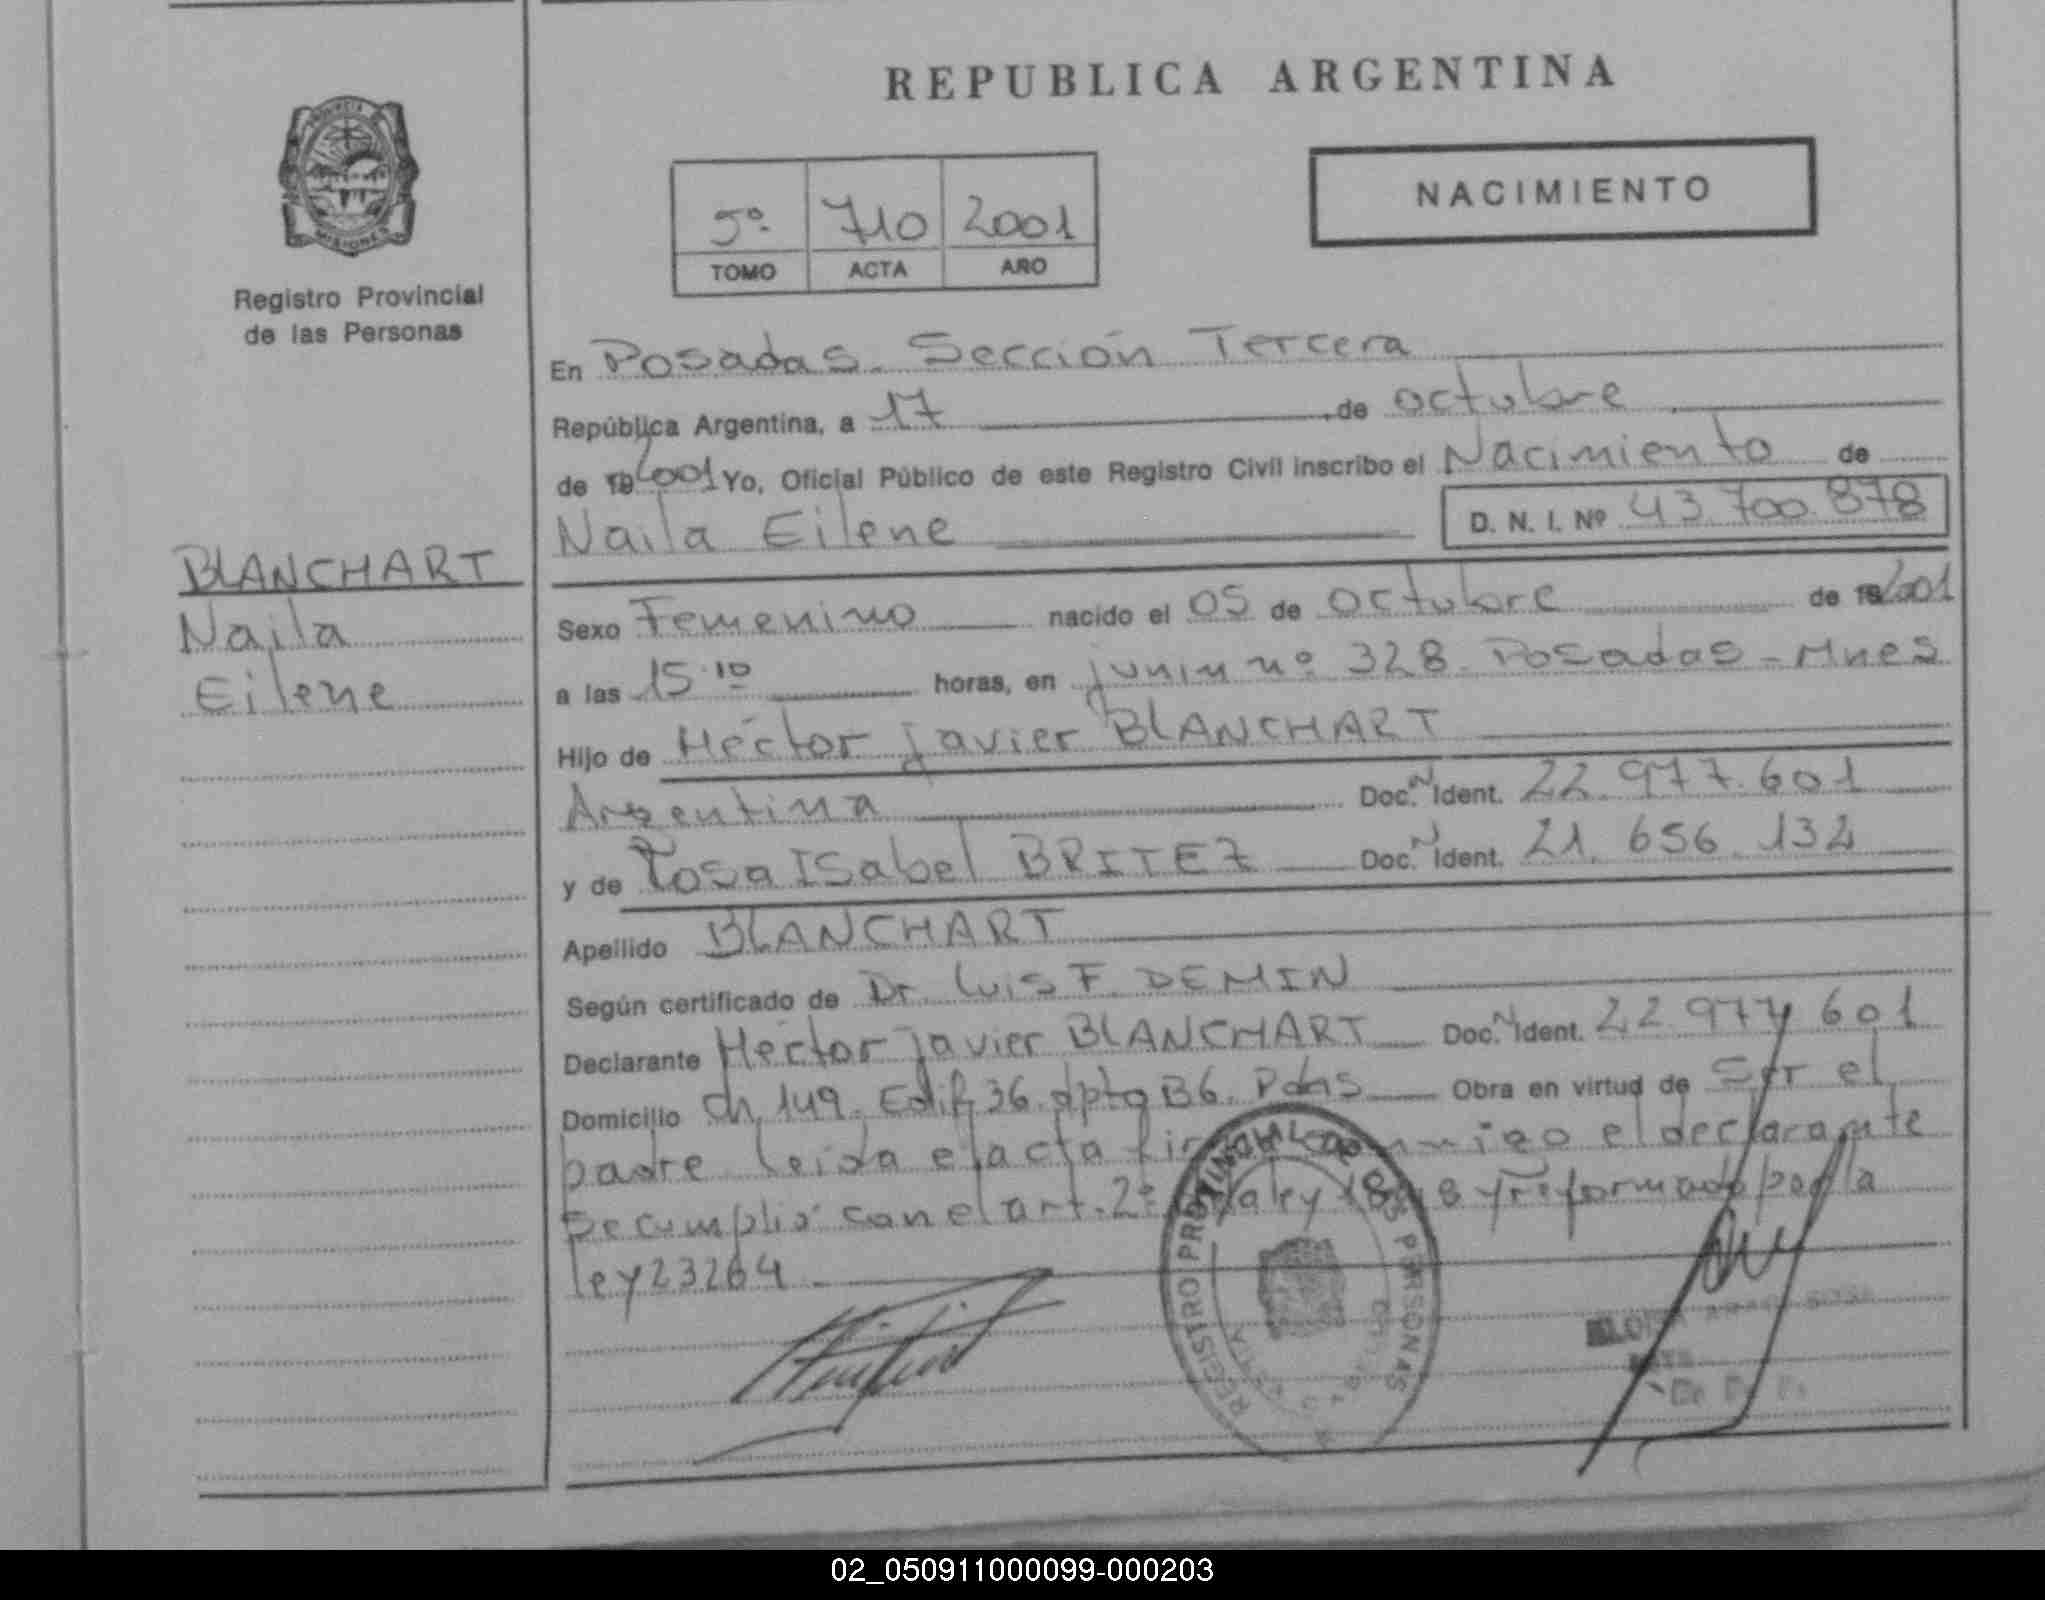 REPUBLICA ARGENTINA
PROVINCIA
MISIONES
Registro Provincial
de las Personas
NACIMIENTO
5º 710 2001
TOMO ACTA AÑO
En Posadas. Sección Tercera
República Argentina, a 17 de octubre
de 19 2001 Yo, Oficial Público de este Registro Civil inscribo el Nacimiento de
Naila Eilene D. N. I. Nº 43.700.878
BLANCHART
Naila
Eilene
Sexo Femenino nacido el 05 de octubre de 19 2001
a las 15.10 horas, en junin nº 328. Posadas - Mnes
Hijo de Héctor javier BLANCHART
Argentina Doc. N Ident. 22.977.601
y de Rosa ISabel BRITEZ Doc. N Ident. 21.656.132
Apellido BLANCHART
Según certificado de Dr. Luis F. DEMIN
Declarante Héctor javier BLANCHART Doc. N Ident. 22.977.601
Domicilio ch. 149. Edif. 36. dpto B6. Pdas Obra en virtud de Ser el
padre leida el acta el declarante
Se cumplió con el art. 2º ley y reformado por la
ley 23264
REGISTRO PROVINCIAL DE LAS PERSONAS
02_050911000099-000203